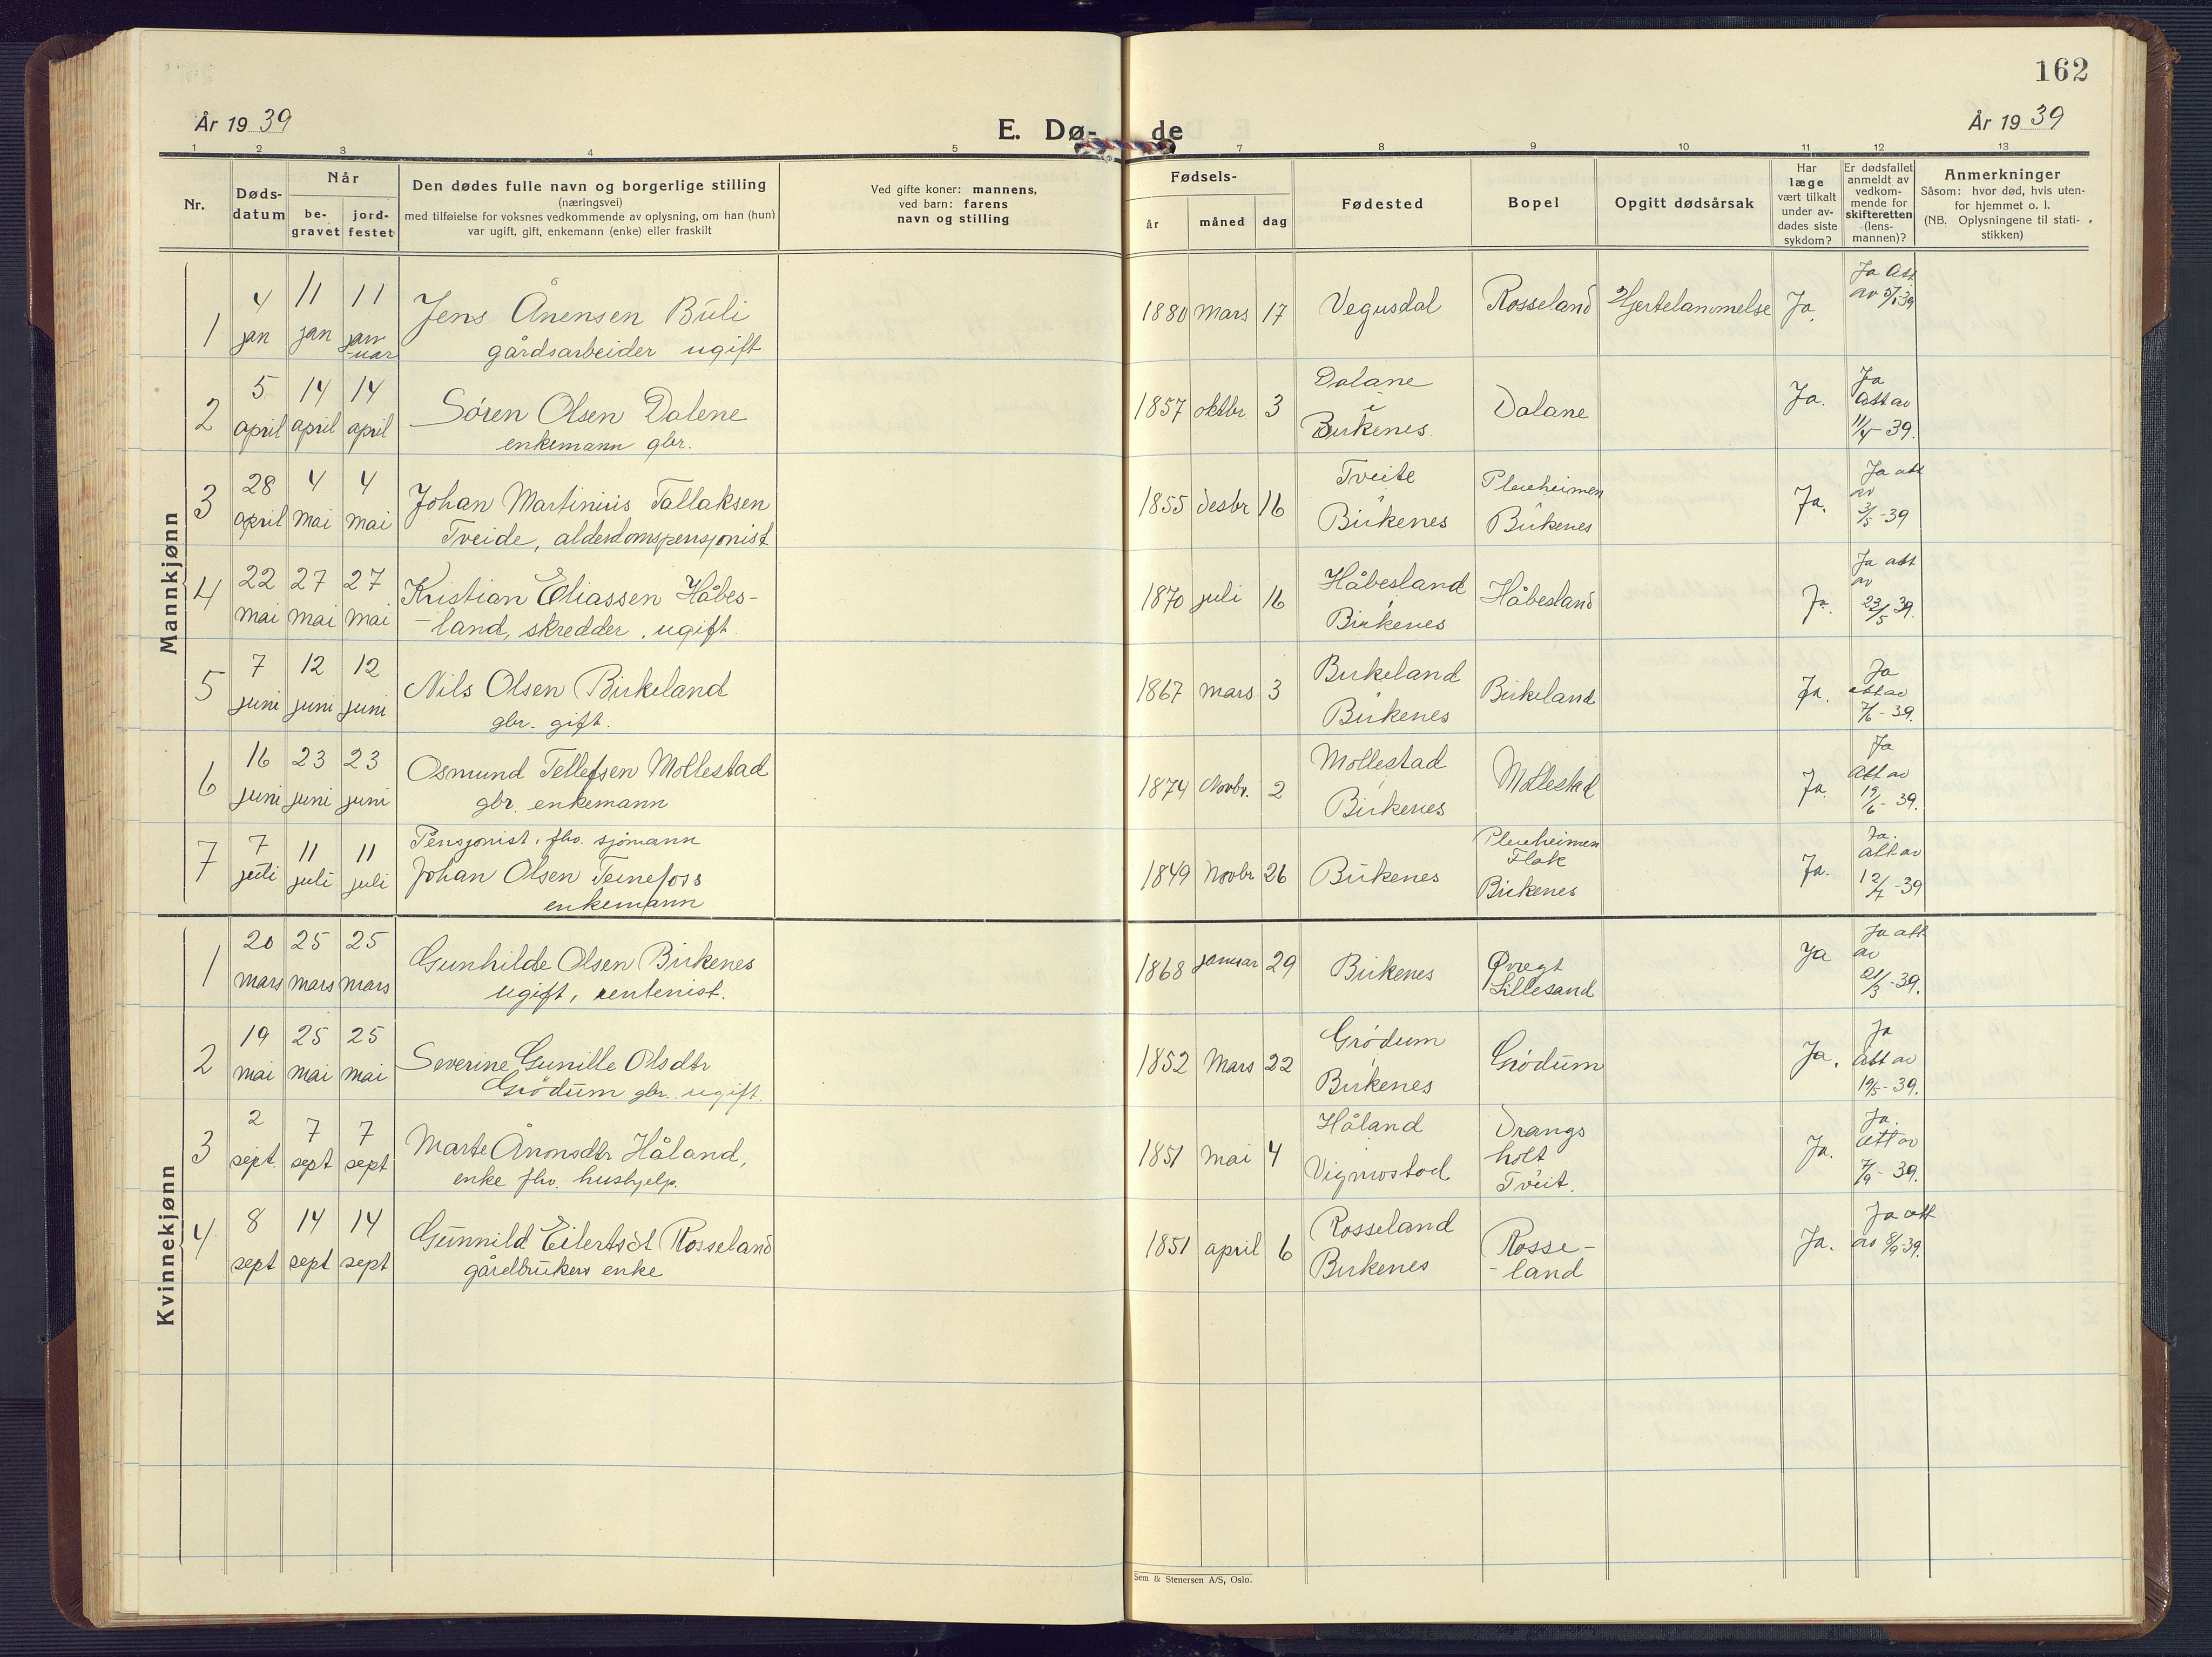 162
År 1939
E. Dø-de
År 1939
1 2 3 4 5 7 8 9 10 11 12 13
Nr.
Døds-
datum
Når
be-
gravet
jord-
festet
Den dødes fulle navn og borgerlige stilling
(næringsvei)
med tilføielse for voksnes vedkommende av oplysning, om han (hun)
var ugift, gift, enkemann (enke) eller fraskilt
Ved gifte koner: mannens,
ved barn: farens
navn og stilling
Fødsels-
år
måned
dag
Fødested
Bopel
Opgitt dødsårsak
Har
læge
vært tilkalt
under av-
dødes siste
sykdom?
Er dødsfallet
anmeldt av
vedkom-
mende for
skifteretten
(lens-
mannen)?
Anmerkninger
Såsom: hvor død, hvis uten-
for hjemmet o. l.
(NB. Oplysningene til stati-
stikken)
Mannkjønn
1 4 jan 11 jan 11 jan-uar
Jens Ånensen Buli
gårdsarbeider ugift
1880 Mars 17 Vegusdal Rosseland Hjertelammelse Ja.
Ja Att
av 5/1 39
2 5 april 14 april 14 april
Søren Olsen Dalene
enkemann gbr.
1857 oktbr 3
Dalane
i
Birkenes
Dalane Ja.
Ja
Att av
11/4-39.
3 28 april 4 mai 4 mai
Johan Martinius Tallaksen
Tveide, alderdomspensjonist
1855 desbr 16
Tveite
Birkenes
Pleieheimen
Birkenes
Ja.
Ja att
av
3/5-39
4 22 mai 27 mai 27 mai
Kristian Eliassen Håbes-
-land, skredder, ugift
1870 juli 16
Håbesland
Birkenes
Håbesland Ja.
Ja att
av
23/5 39.
5 7 juni 12 juni 12 juni
Nils Olsen Birkeland
gbr. gift.
1867 mars 3
Birkeland
Birkenes
Birkeland Ja.
Ja
att av
7/6-39.
6 16 juni 23 juni 23 juni
Osmund Tellefsen Mollestad
gbr. enkemann
1874 Novbr. 2
Mollestad
Birkenes
Mollestad Ja.
Ja
Att av
19/6-39.
7 7 juli 11 juli 11 juli
Pensjonist, fhv. sjømann
Johan Olsen Teinefoss
enkemann
1849 Novbr 26 Birkenes
Pleieheimen
Flak
Birkenes
Ja.
Ja.
att av
12/7-39
Kvinnekjønn
1 20 mars 25 mars 25 mars
Gunhilde Olsen Birkenes
ugift, rentenist.
1868 januar 29 Birkenes
Øvregt
Lillesand
Ja
Ja att
av
21/3-39.
2 19 mai 25 mai 25 mai
Severine Gunille Olsdtr
Grødum gbr. ugift.
1852 Mars 22
Grødum
Birkenes
Grødum Ja.
Ja
att av
19/5-39.
3 2 sept. 7 sept 7 sept
Marte Ånonsdtr Håland,
enke fhv. hushjelp.
1851 mai 4
Håland
Vigmostad
Drangs
holt
Tveit.
Ja.
Ja.
att av
7/9-39.
4 8 sept 14 sept 14 sept
Gunnild Eilertsdt Rosseland
gårdbrukers enke
1851 april 6
Rosseland
Birkenes
Rosse-
-land
Ja.
Ja att
av 8/9-39.
Sem & Stenersen A/S, Oslo.